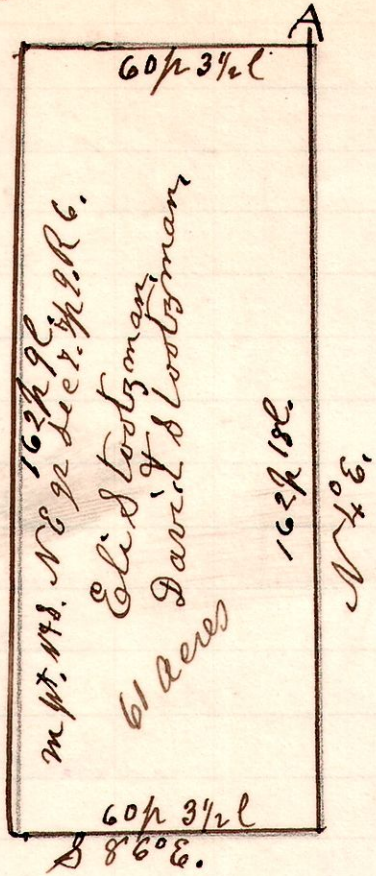 A
60p 3½l
162p 9l
NE qr Sec 7. Tp 9. R 6.
Eli Stootzman,
David Stootzman,
61 acres
162p 18l.
60p 3½l
S 86°E.